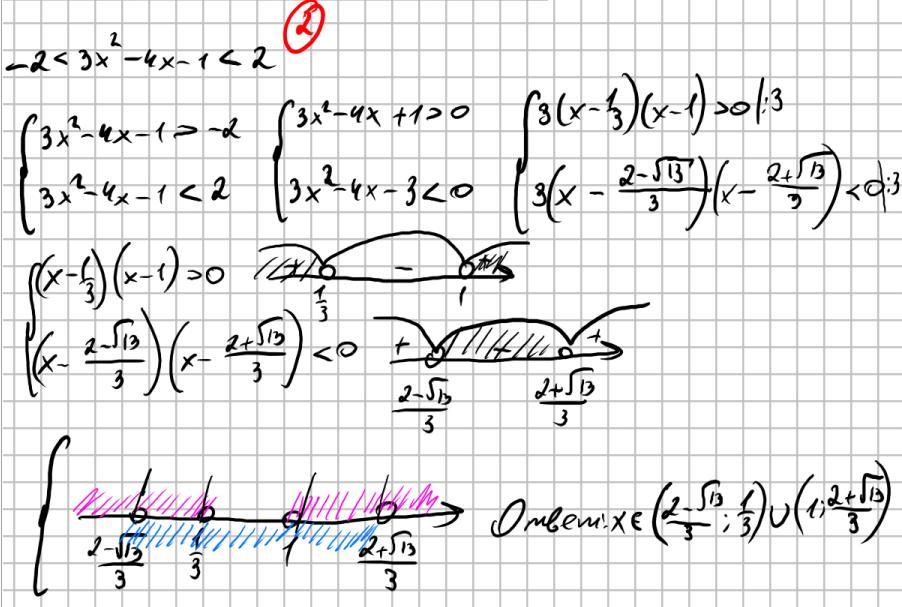 ②
-2 < 3x² - 4x - 1 < 2
{ 3x² - 4x - 1 > -2
3x² - 4x - 1 < 2
{ 3x² - 4x + 1 > 0
3x² - 4x - 3 < 0
{ 3(x - 1/3)(x - 1) > 0 |:3
3(x - (2-√13)/3)(x - (2+√13)/3) < 0 |:3
{ (x - 1/3)(x - 1) > 0
(x - (2-√13)/3)(x - (2+√13)/3) < 0
+ - +
1/3 1
+ - +
(2-√13)/3 (2+√13)/3
{
(2-√13)/3 1/3 1 (2+√13)/3
Ответ: x ∈ ((2-√13)/3; 1/3) ∪ (1; (2+√13)/3)